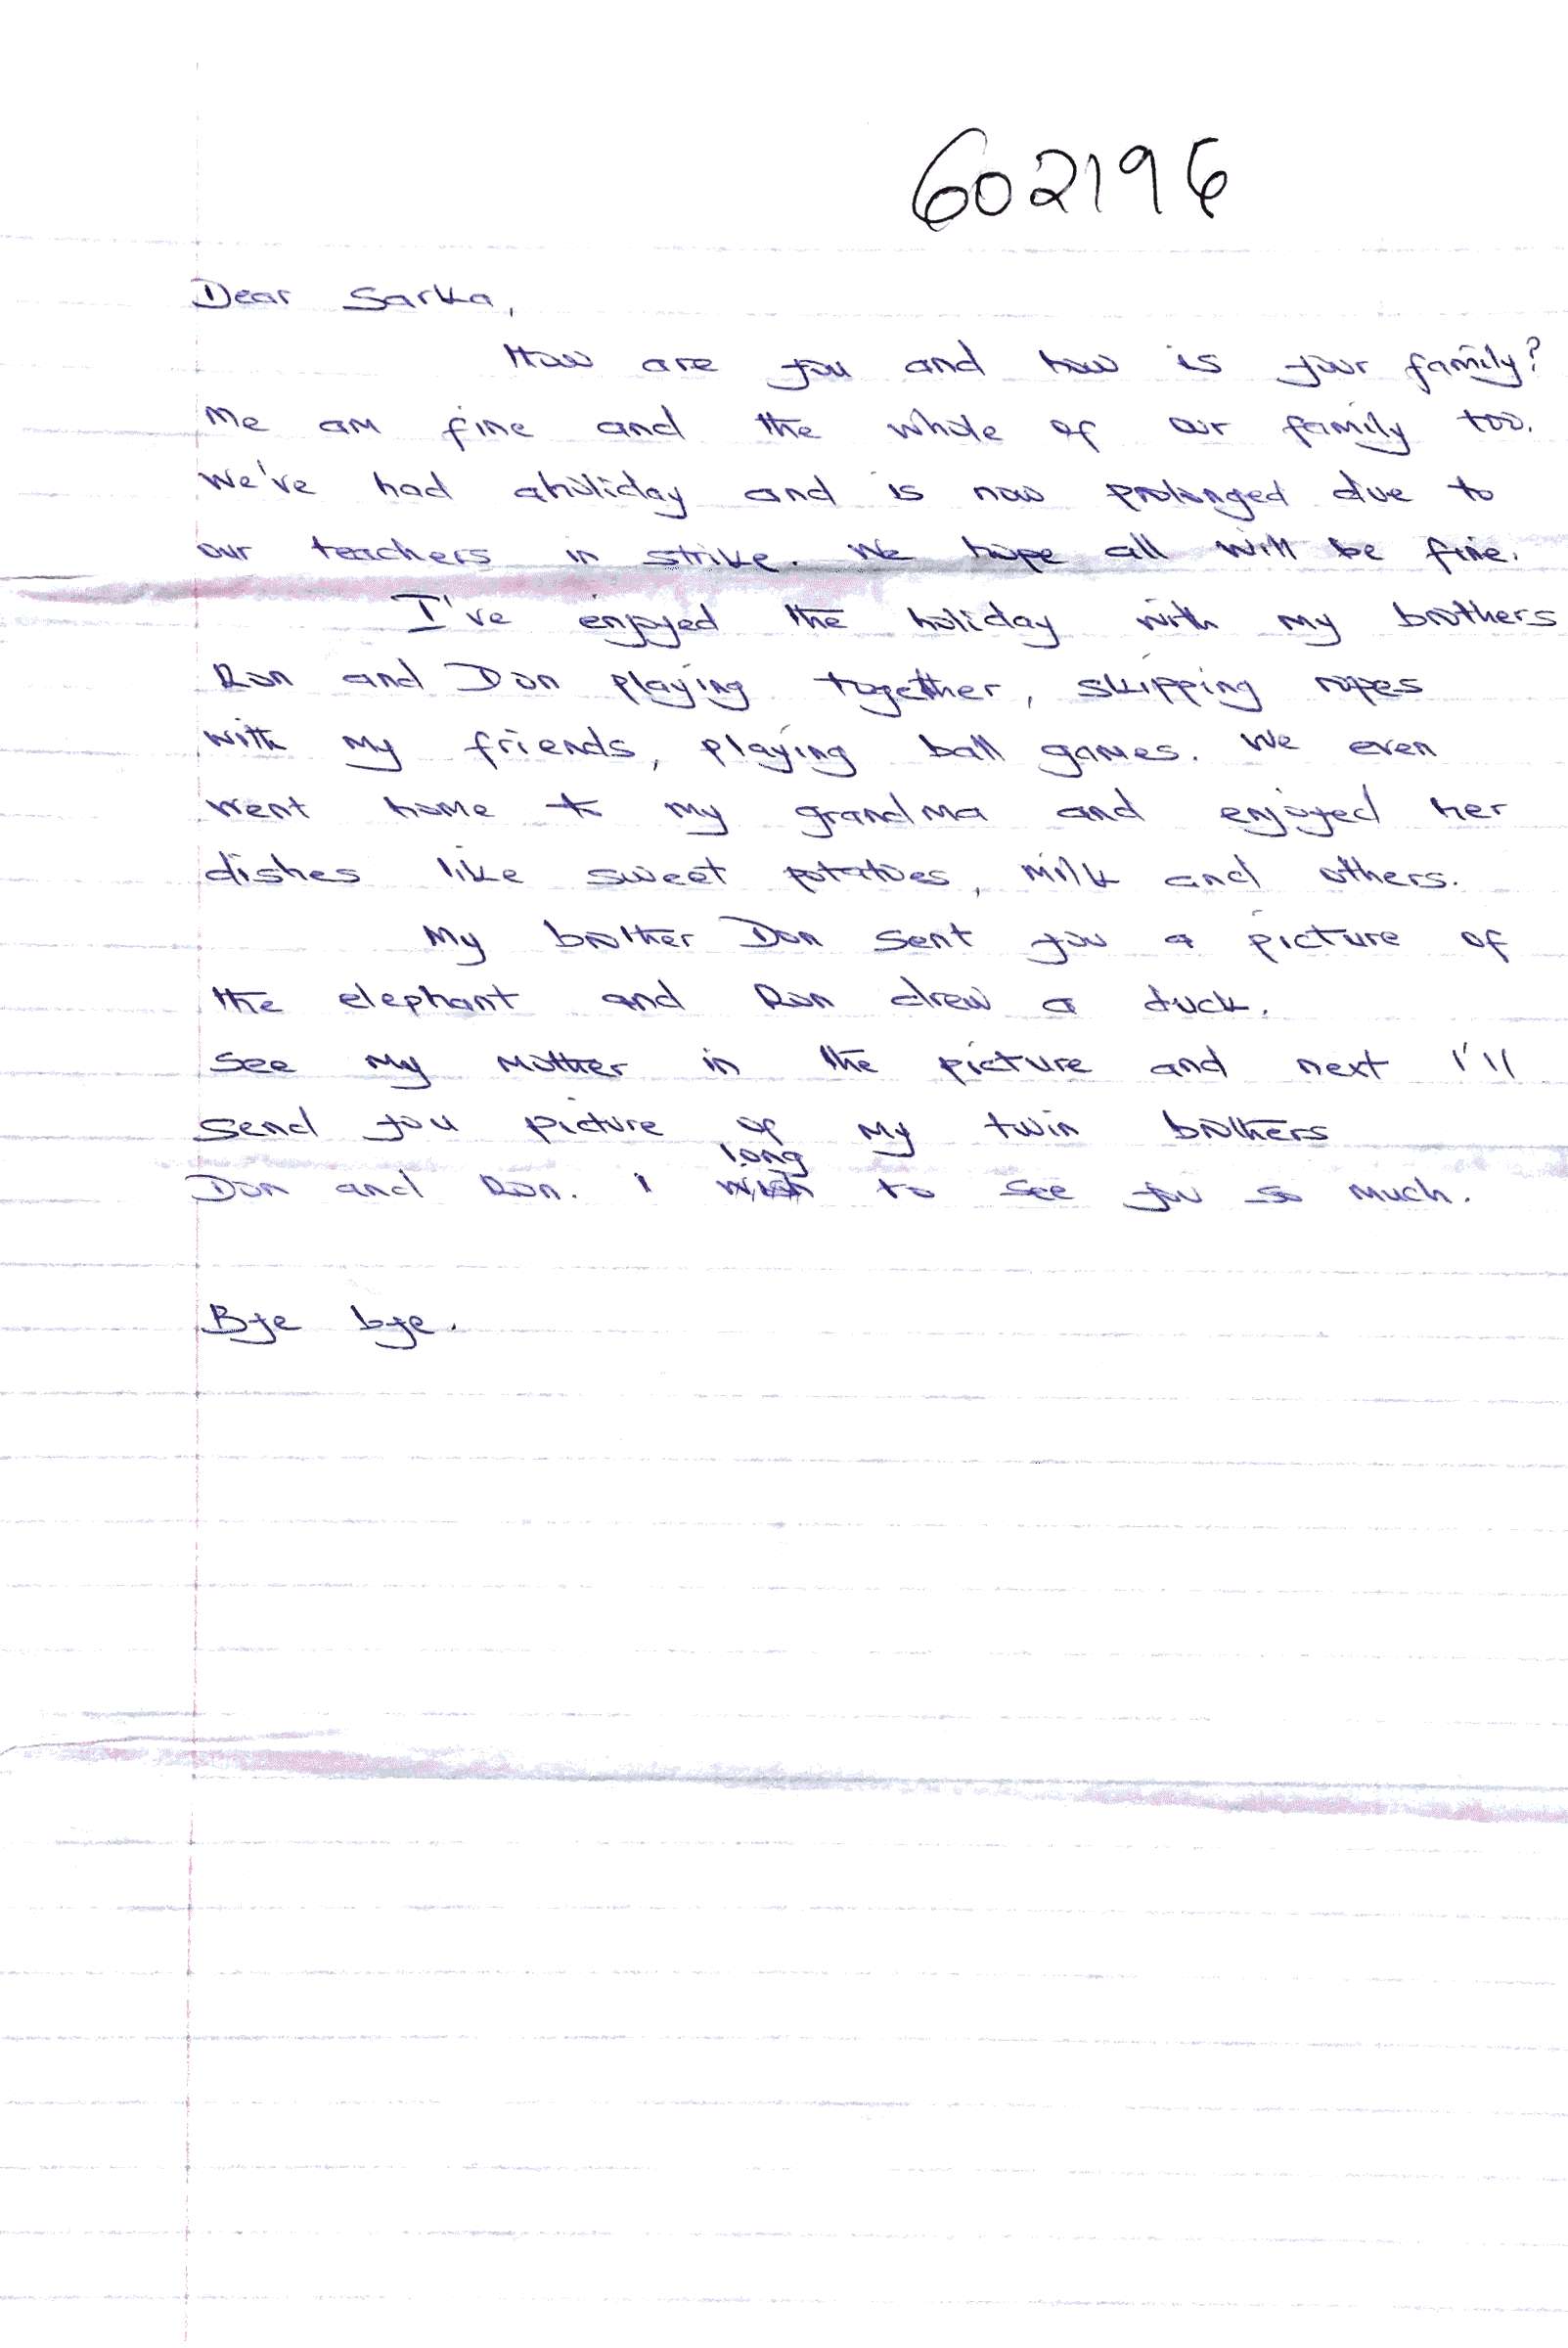 602196
Dear Sarka,
How are you and how is your family?
Me am fine and the whole of our family too.
We've had aholiday and is now prolonged due to
our teachers in strike. We hope all will be fine.
I've enjoyed the holiday with my brothers
Ron and Don playing together, skipping ropes
with my friends, playing ball games. We even
went home to my grandma and enjoyed her
dishes like sweet potatoes, milk and others.
My brother Don sent you a picture of
the elephant and Ron drew a duck.
See my mother in the picture and next I'll
send you picture of my twin brothers
long
Don and Ron. I wish to see you so much.
Bye bye.